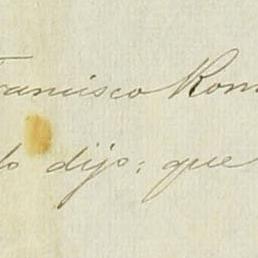 Francisco Rom
lo dijo: que